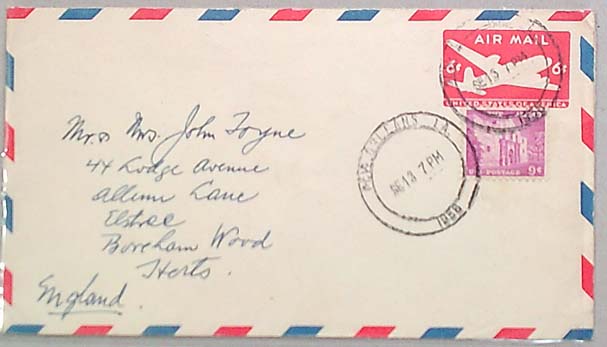 AIR MAIL
6¢ 6¢
UNITED STATES OF AMERICA
SE 13 7 PM
1956
NEW ORLEANS, LA.
SE 13 7 PM
1956
U.S. POSTAGE 9¢
Mr. & Mrs. John Foyne
44 Lodge Avenue
Lane
Elstree
Boreham Wood
Herts.
England.